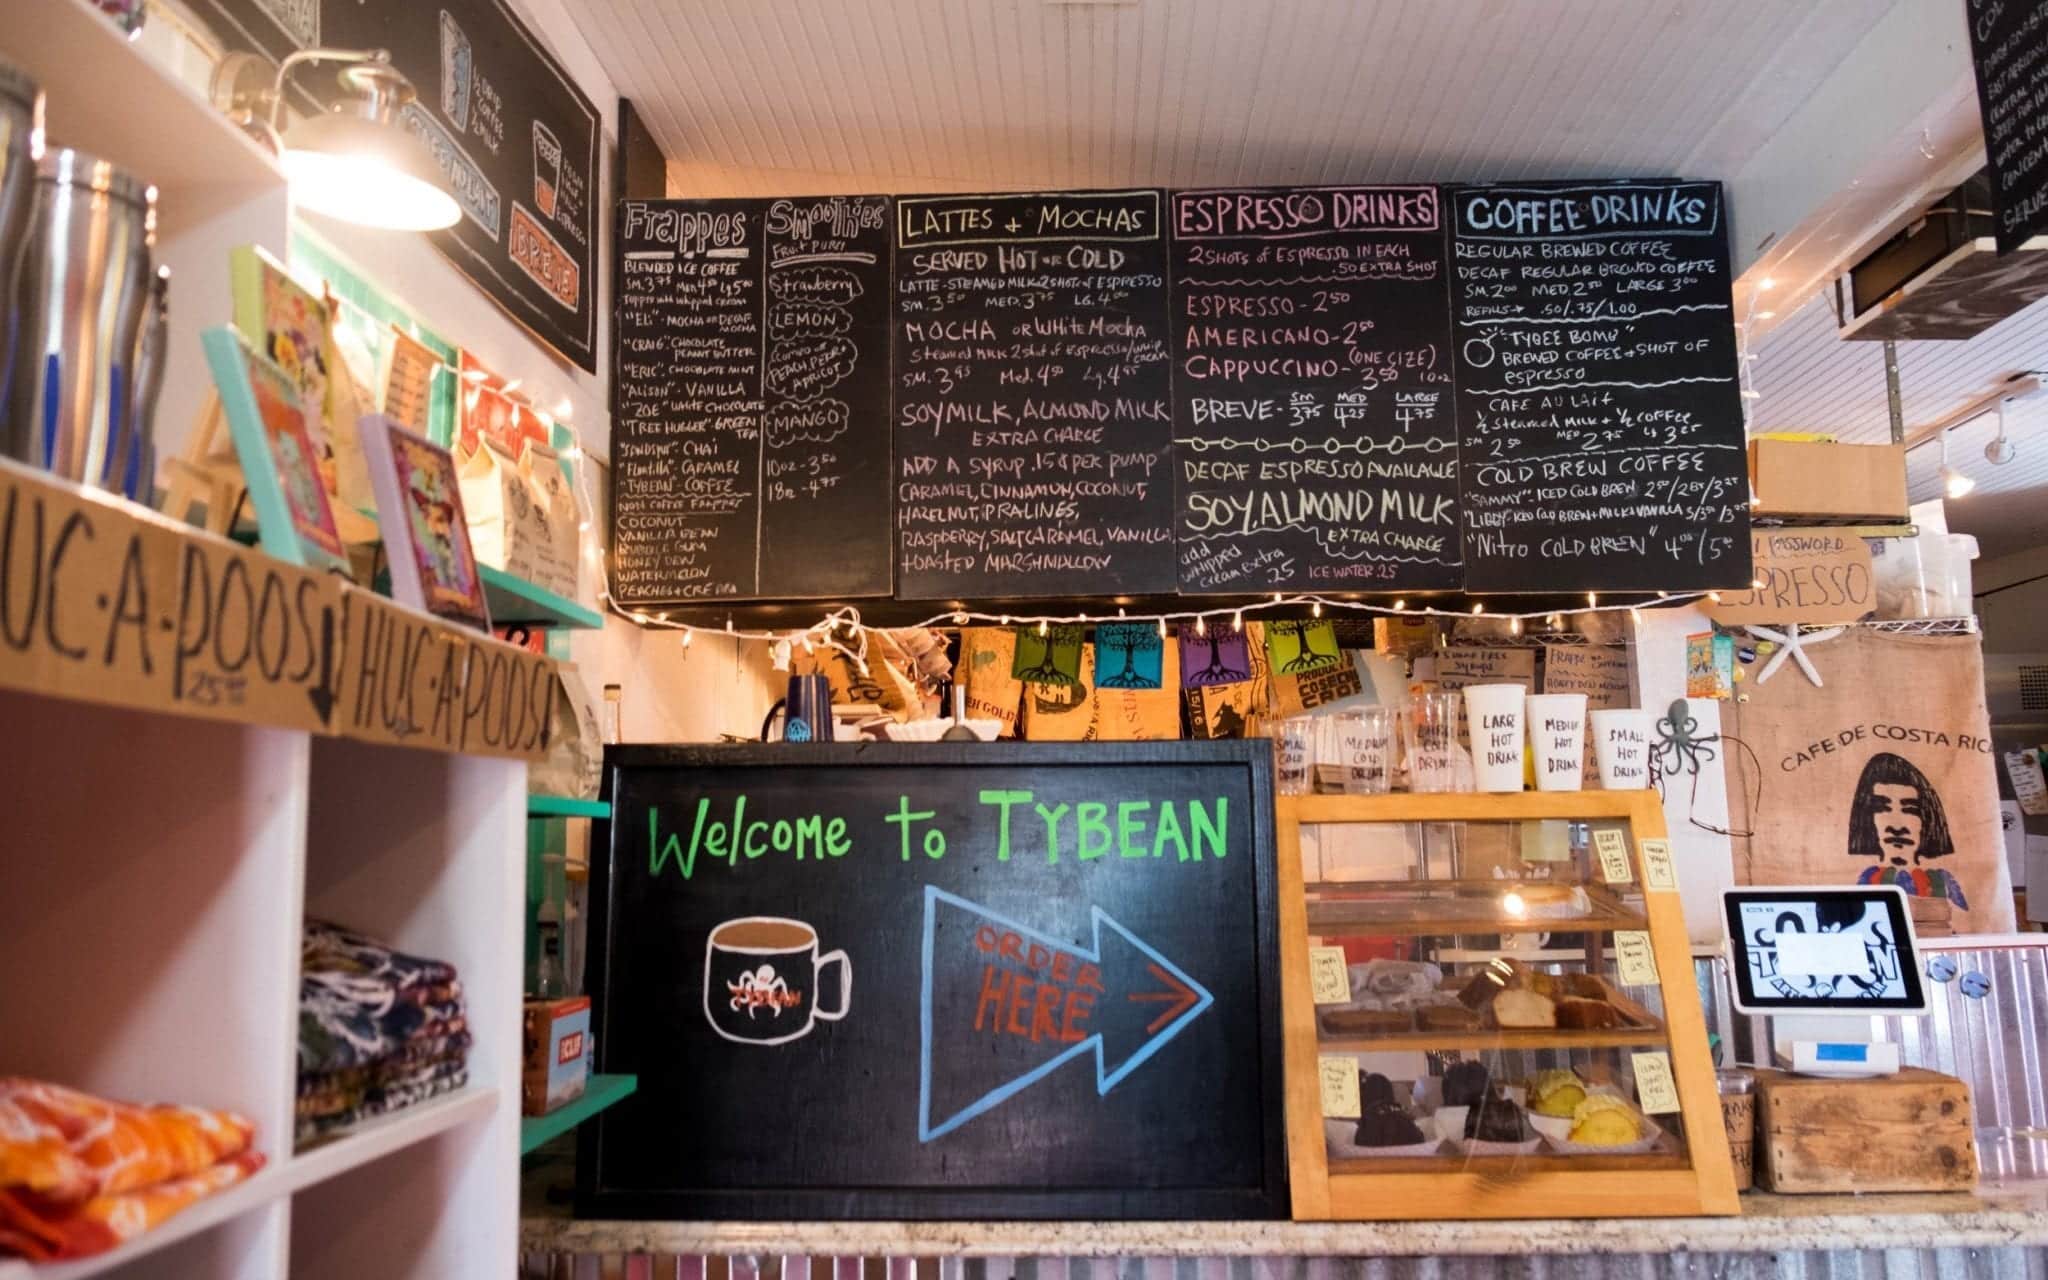 ½ DRIP
COFFEE
½ MILK
FOAM
HALF +
HALF
ESPRESSO
BREVE
Frappes
BLENDED ICE COFFEE
SM. 3.75 Med 4.50 Lg 5.00
Topped with whipped cream
"Eli" - MOCHA or DECAF
MOCHA
"CRAIG" CHOCOLATE
PEANUT BUTTER
"ERIC" CHOCOLATE MINT
"ALISON" - VANILLA
"ZOE" WHITE CHOCOLATE
"TREE HUGGER" GREEN
TEA
"SANDSPUR" CHAI
"Flotilla" - CARAMEL
"TYBEAN" - COFFEE
NON COFFEE Frappes
COCONUT
VANILLA BEAN
BUBBLE GUM
HONEY DEW
WATERMELON
PEACHES + CREAM
Smoothies
FRUIT PUREE
Strawberry
LEMON
COMBO OF
PEACH, PEAR +
APRICOT
MANGO
10oz - 3.50
18oz - 4.75
LATTES + MOCHAS
SERVED HOT OR COLD
LATTE - STEAMED MILK 2 SHOT OF ESPRESSO
SM. 3.50 MED. 3.75 LG. 4.00
MOCHA OR White Mocha
Steamed Milk 2 shot of Espresso/whip
cream
SM. 3.95 Med. 4.50 Lg. 4.95
SOYMILK, ALMOND MILK
EXTRA CHARGE
ADD A SYRUP .15¢ PER PUMP
CARAMEL, CINNAMON, COCONUT,
HAZELNUT, PRALINES,
RASPBERRY, SALTCARAMEL, VANILLA
TOASTED MARSHMALLOW
ESPRESSO DRINKS
2 SHOTS of ESPRESSO IN EACH
.50 EXTRA SHOT
ESPRESSO - 2.50
AMERICANO - 2.50
CAPPUCCINO - (ONE SIZE)
3.50 10oz
BREVE - SM 3.75 MED 4.25 LARGE 4.75
DECAF ESPRESSO AVAILABLE
SOY, ALMOND MILK
EXTRA CHARGE
add
whipped
cream extra
.25
ICE WATER .25
COFFEE DRINKS
REGULAR BREWED COFFEE
DECAF REGULAR BREWED COFFEE
SM. 2.00 MED. 2.50 LARGE 3.00
REFILLS → .50/.75/1.00
"TYBEE BOMB"
BREWED COFFEE + SHOT OF
espresso
CAFE AU LAIT
½ Steamed MILK + ½ COFFEE
SM 2.50 MED 2.75 LG 3.25
COLD BREW COFFEE
"SAMMY": ICED COLD BREW
"LIBBY" - ICED COLD BREW + MILK & VANILLA
"Nitro COLD BREW" 4.00/5.00
PASSWORD
ESPRESSO
HUC·A·POOS↓
25.00
HUC·A·POOS↓
SUGAR FREE
SYRUPS
SMALL
COLD
DRINK
MEDIUM
COLD
DRINK
LARGE
COLD
DRINK
LARGE
HOT
DRINK
MEDIUM
HOT
DRINK
SMALL
HOT
DRINK
CAFE DE COSTA RICA
Welcome to TYBEAN
TYBEAN
ORDER
HERE
CLIF